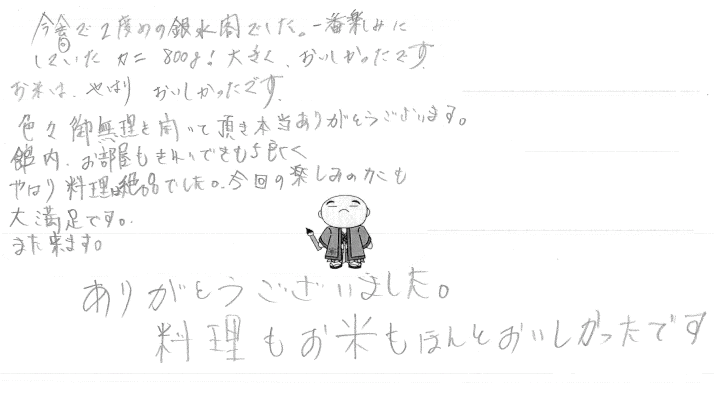 今回で2度めの銀水閣でした。一番楽しみに
していたカニ 800g!大きく、おいしかったです
お米は、やはり おいしかったです.
色々御無理を聞いて頂き本当ありがとうございます。
館内、お部屋もきれいで
やはり料理は絶品でした。今回の楽しみのカニも
大満足です。
また来ます。
ありがとうございました。
料理もお米もほんとおいしかったです